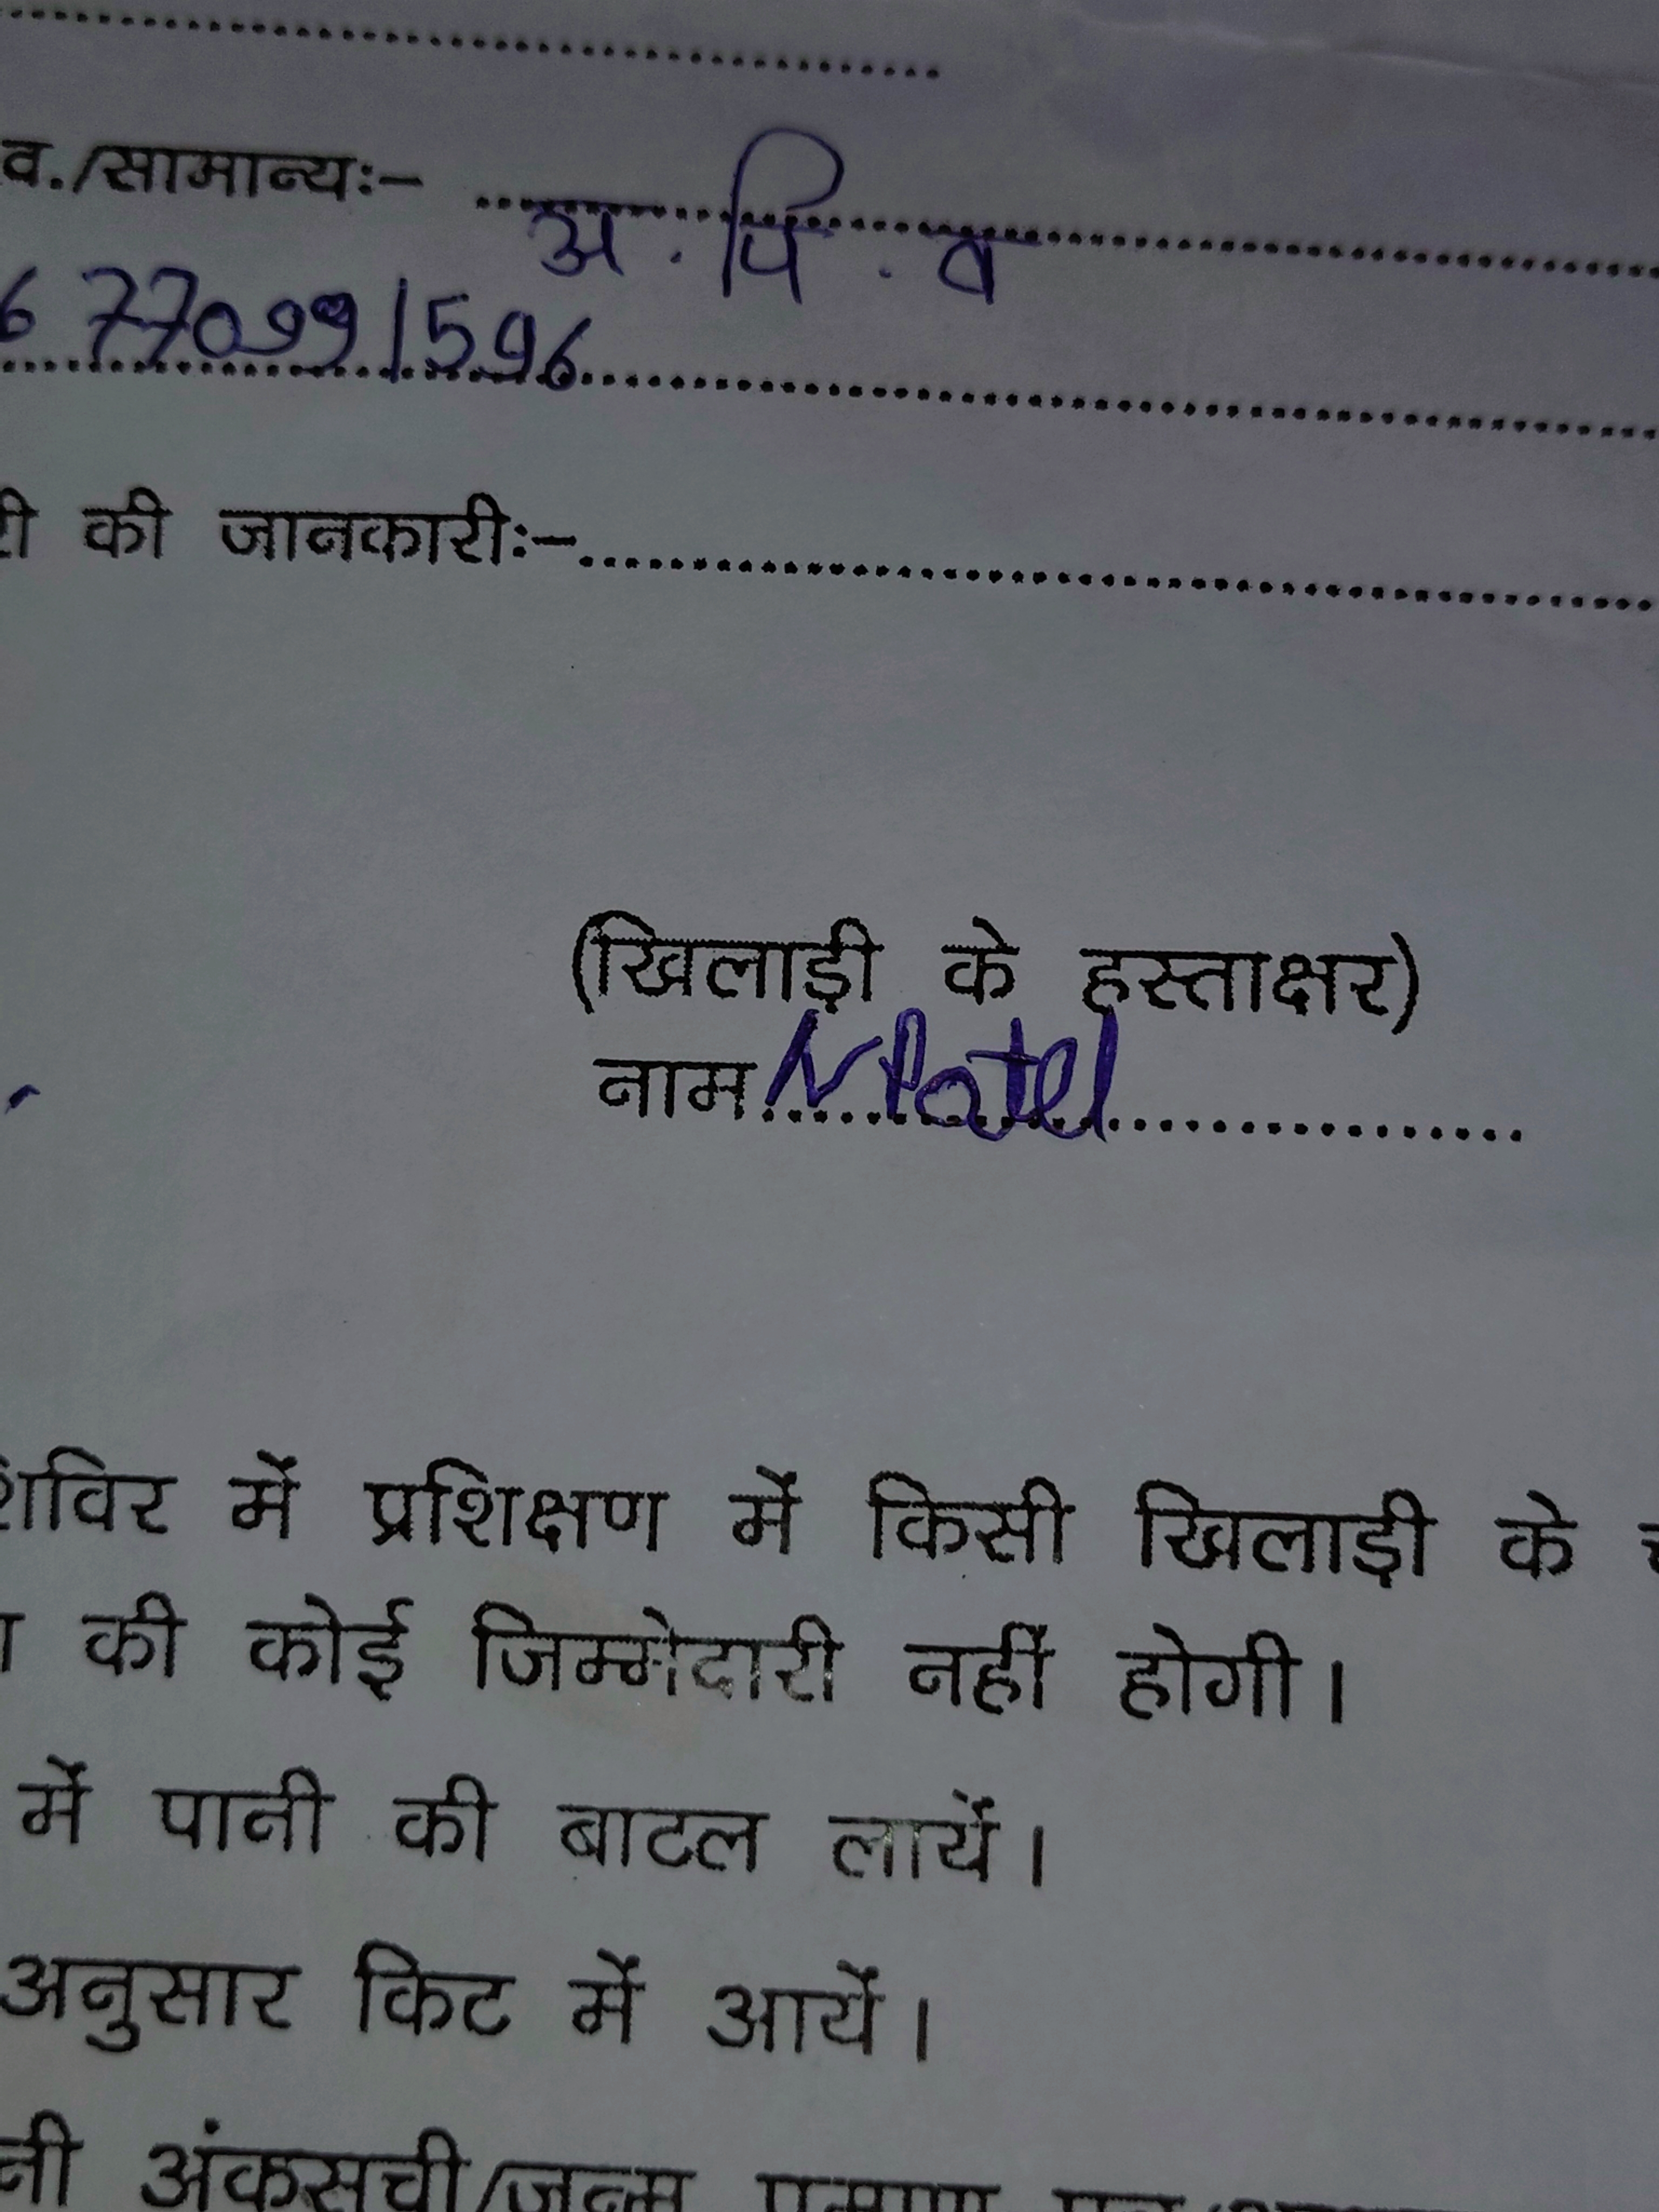 व./सामान्यः- अ. पि. व
6 770991596
री की जानकारीः-
(खिलाड़ी के हस्ताक्षर)
नाम N Patel
शिविर में प्रशिक्षण में किसी खिलाड़ी के
की कोई जिम्मेदारी नहीं होगी।
में पानी की बाटल लायें।
अनुसार किट में आयें।
नी अंकसूची/जन्म प्रमाण